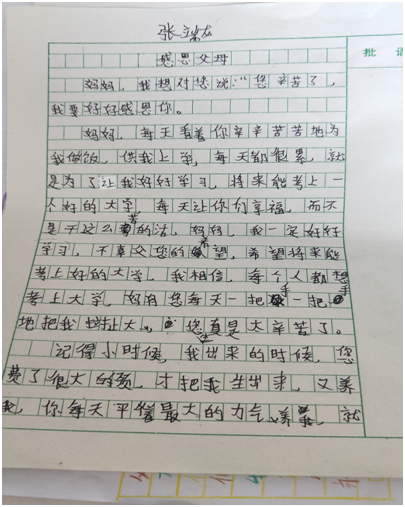 张
批 语
感恩父母
妈妈，我想对您说：“您辛苦了，
我要好好感恩你。
妈妈，每天看着你辛辛苦苦地为
我做饭，供我上学，每天都很累，就
是为了让我好好学习，将来能考上一
个好的大学，每天让你们享福，而不
是干这么苦的活，妈妈，我一定好好
学习，不辜负您的希望，希望将来能
考上好的大学，我相信，每个人都想
考上大学，妈妈您每天一把手一把手
地把我拉扯大，您真是大辛苦了。
记得小时候，我出来的时候，您
费了很大的劲，才把我生出来，又养
我，你每天平着最大的力气，养，就